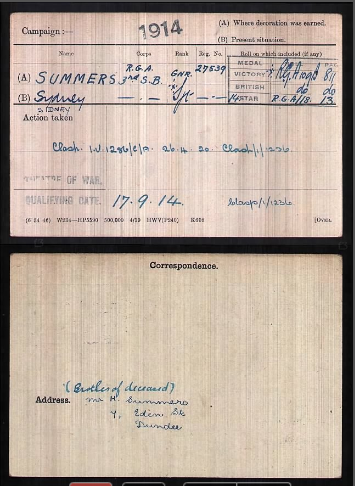 (A) Where decoration was earned.
Campaign :— 1914
(B) Present situation.
Name Corps Rank Reg. No. Roll on which included (if any)
MEDAL
R.G.A. GNR. 27539 VICTORY
(A) SUMMERS 3rd S.B.
BRITISH do do
(B) Sydney — " — Sjt — " — 14 STAR R.G.A/1B. 13.
SIDNEY
Action taken
Clasp. I.V. 1286/E/A. 26.4.20. Clasp/1/1236.
THEATRE OF WAR.
QUALIFYING DATE. 17.9.14. Clasp/1/1236
(6 24 46) W234—HP5590 500,000 4/19 HWV(P240) K608 [OVER.
Correspondence.
(Brother of deceased)
Address. Mr H. Summers
9, Eden St
Dundee